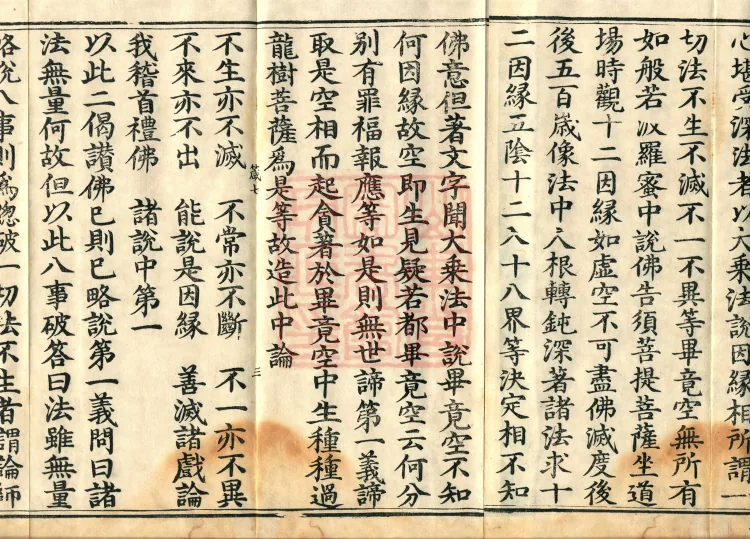 心堪受深法者以大乘法說因緣相所謂一
切法不生不滅不一不異等畢竟空無所有
如般若波羅蜜中說佛告須菩提菩薩坐道
場時觀十二因緣如虛空不可盡佛滅度後
後五百歲像法中人根轉鈍深著諸法求十
二因緣五陰十二入十八界等決定相不知
佛意但著文字聞大乘法中說畢竟空不知
何因緣故空即生見疑若都畢竟空云何分
別有罪福報應等如是則無世諦第一義諦
取是空相而起貪著於畢竟空中生種種過
龍樹菩薩爲是等故造此中論
七 三
不生亦不滅 不常亦不斷 不一亦不異
不來亦不出 能說是因緣 善滅諸戲論
我稽首禮佛 諸說中第一
以此二偈讚佛已則已略說第一義問曰諸
法無量何故但以此八事破答曰法雖無量
略說八事則爲惣破一切法不生者謂論師